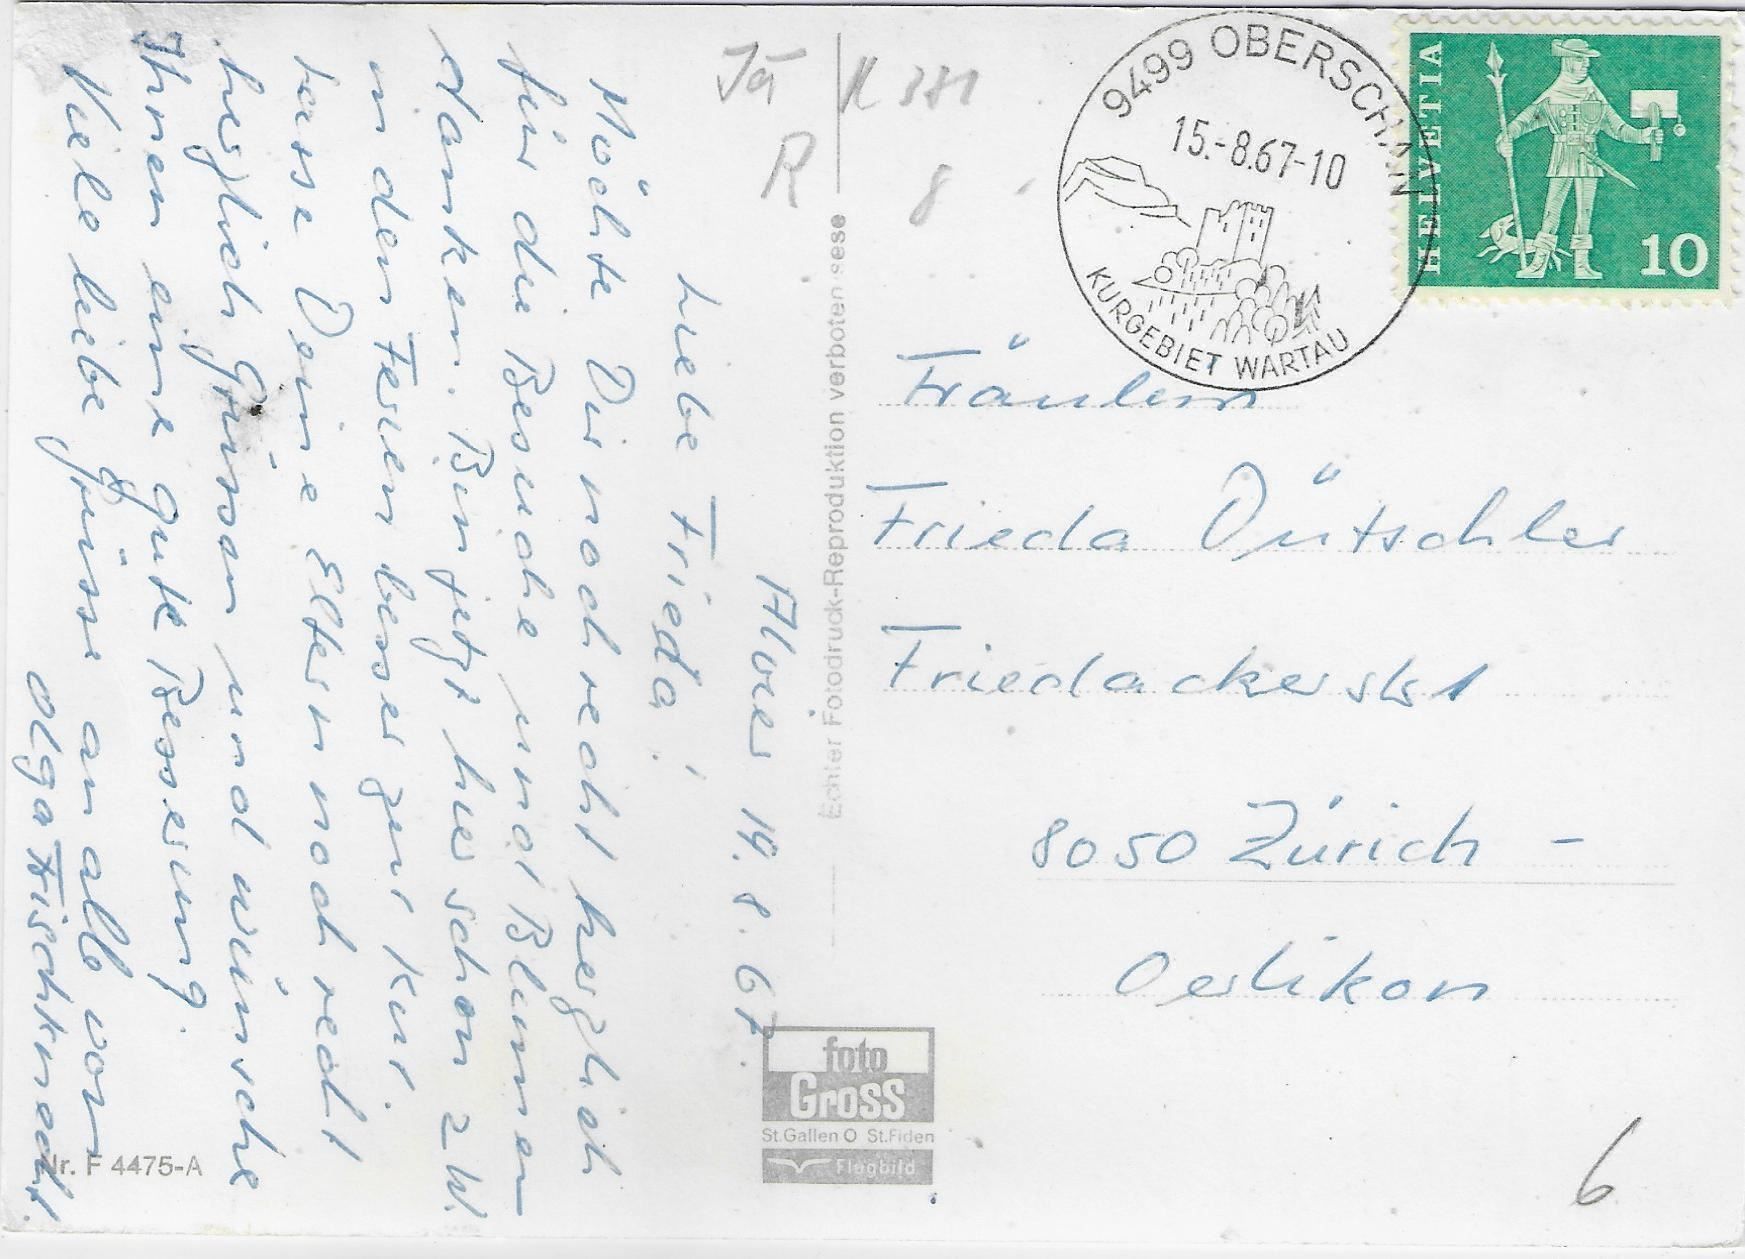 Alvier 14. 8. 67.
Liebe Frieda!
Möchte Dir noch recht herzlich
für die Besuche und Blumen
danken. Bin jetzt hier schon 2 W.
in den Ferien besser zur Kur.
Lasse Deine Eltern noch recht
herzlich Grüssen und wünsche
Ihnen eine gute Besserung.
Viele liebe Grüsse an alle von
Olga Fischknecht.
Nr. F 4475-A
Echter Fotodruck-Reproduktion verboten sese
foto
Gross
St.Gallen O St.Fiden
Flugbild
Jä
R
K 381
8
9499 OBERSCHAN
15.-8.67-10
KURGEBIET WARTAU
HELVETIA
10
Fräulein
Frieda Dütschler
Friedackerstr 1
8050 Zürich -
Oerlikon
6